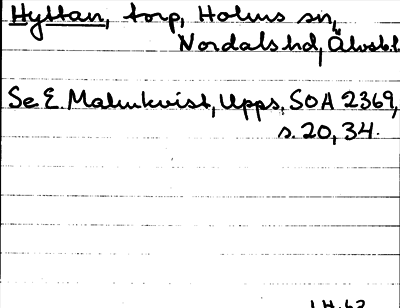 Hyttan, torp, Holms sn,
Nordals hd, Älvsb.l
Se E. Malmkvist, Upps, SOA 2369,
s. 20, 34.